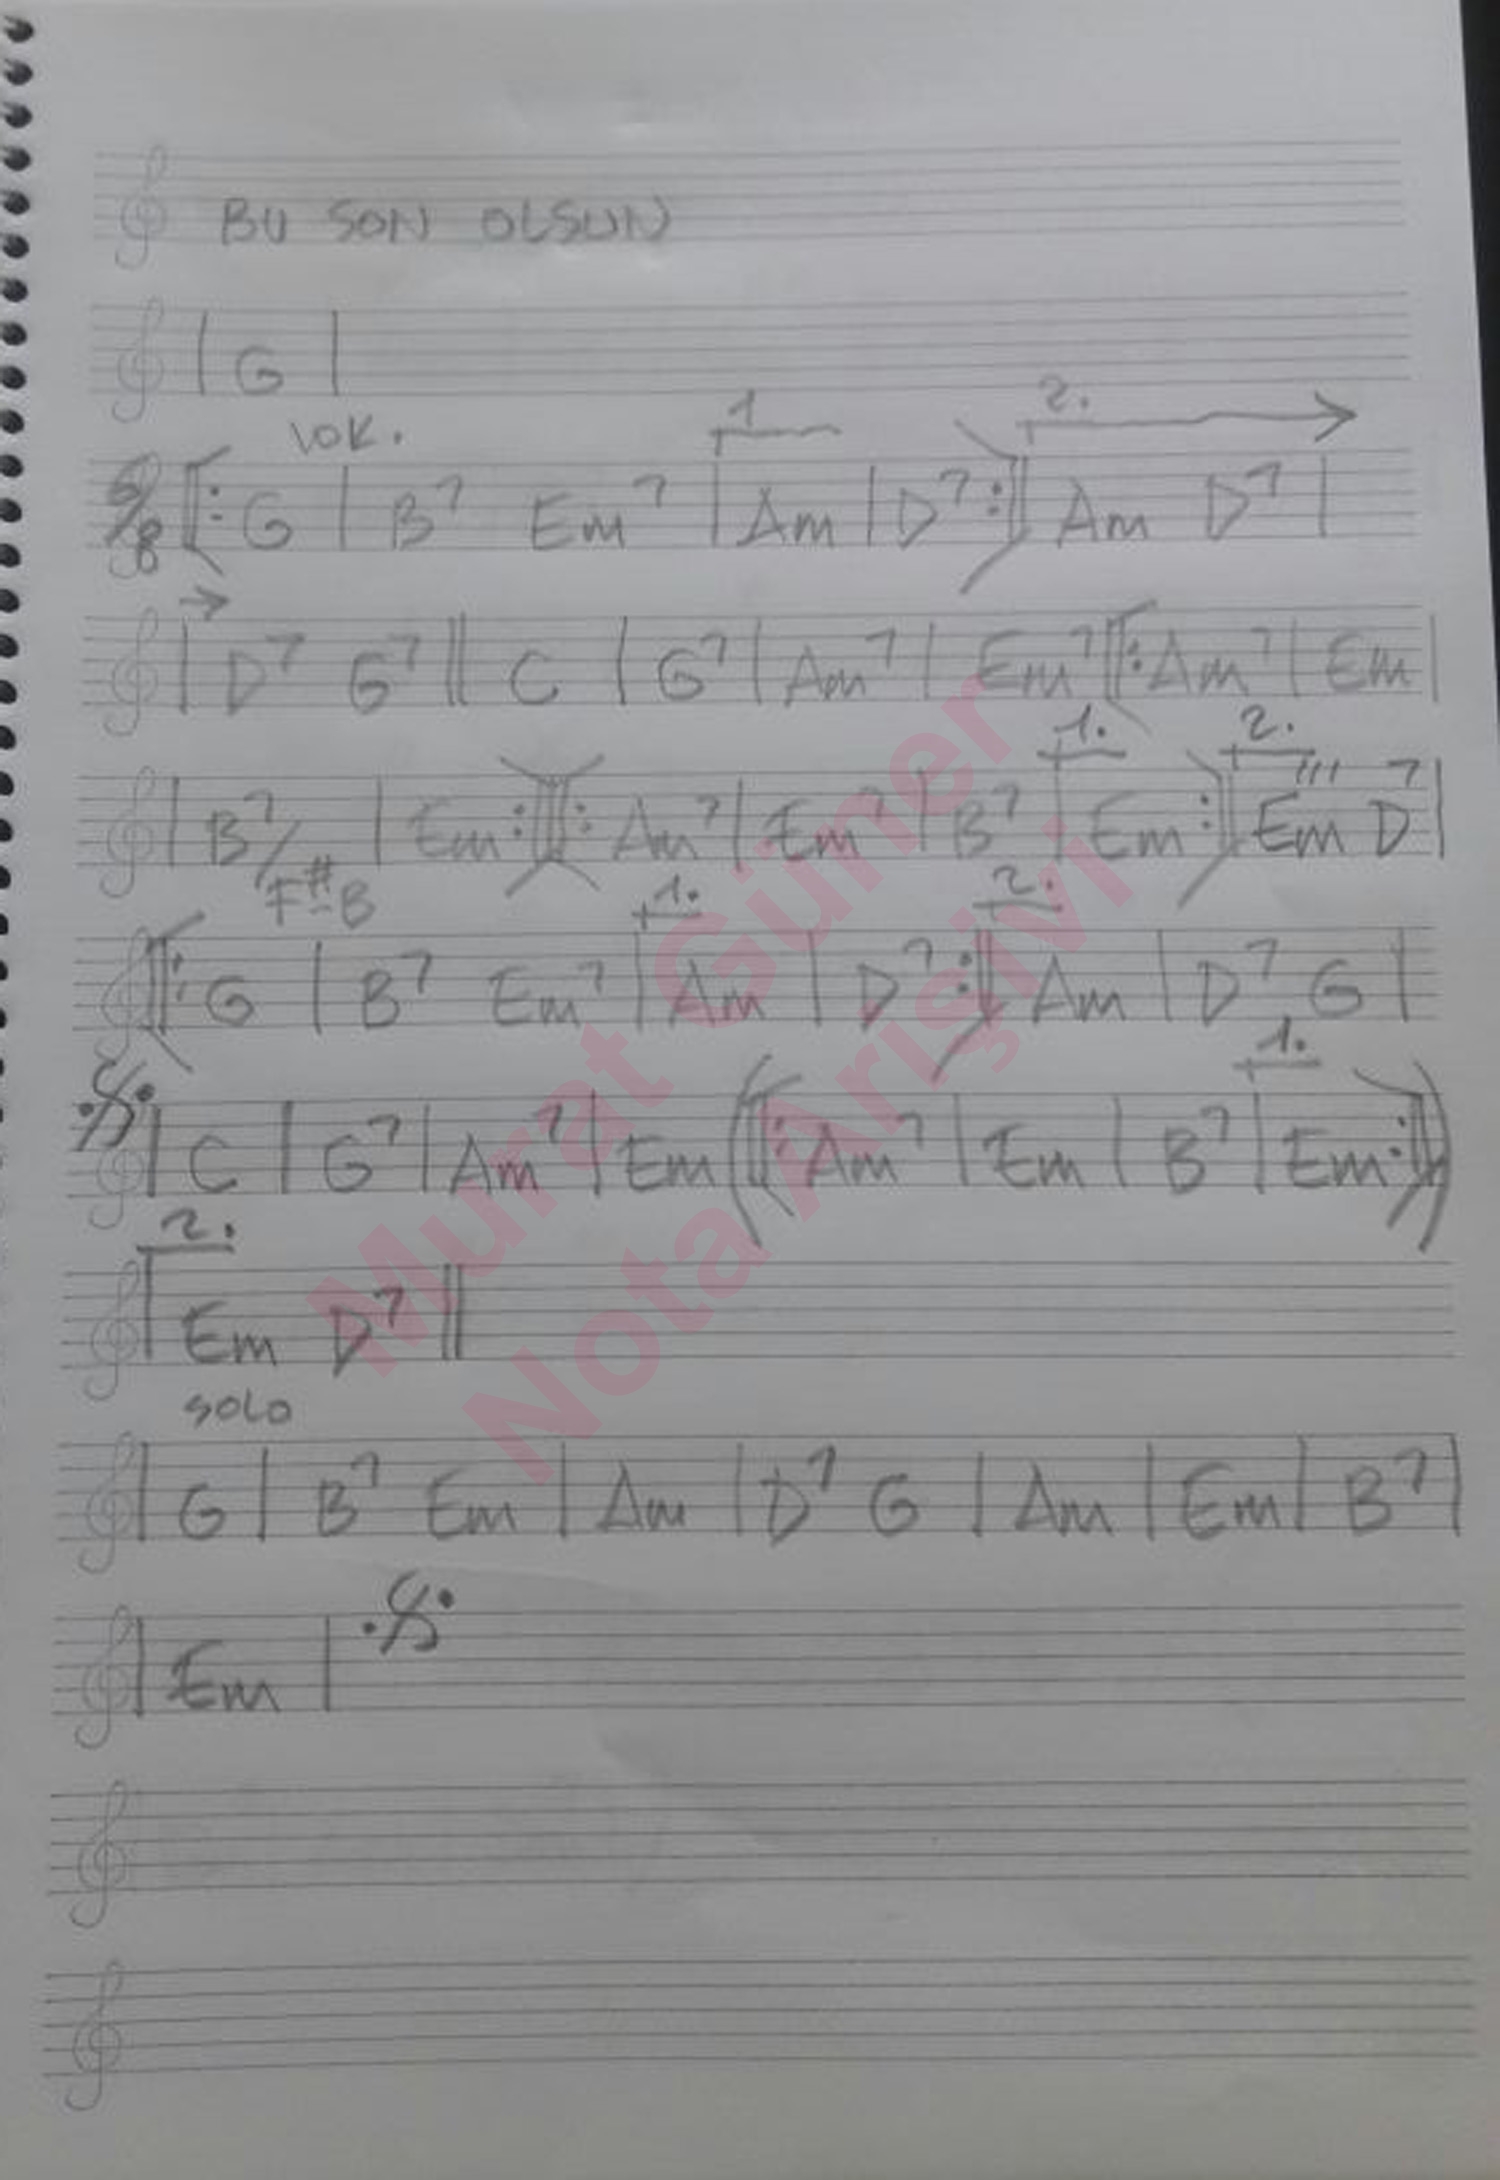 BU SON OLSUN
| G |
VOK. 1 2.
6/8 ||: G | B7 Em7 | Am | D7 :|| Am D7 |
| D7 G7 || C | G7 | Am7 | Em7 ||: Am7 | Em |
1. 2.
| B7/F# B | Em :||: Am7 | Em7 | B7 | Em :|| Em D7 |
1. 2.
||: G | B7 Em7 | Am | D7 :|| Am | D7 G |
1.
| C | G7 | Am7 | Em (||: Am7 | Em | B7 | Em :||)
2.
| Em D7 ||
SOLO
| G | B7 Em | Am | D7 G | Am | Em | B7 |
| Em |
Murat Güner
Nota Arişivi